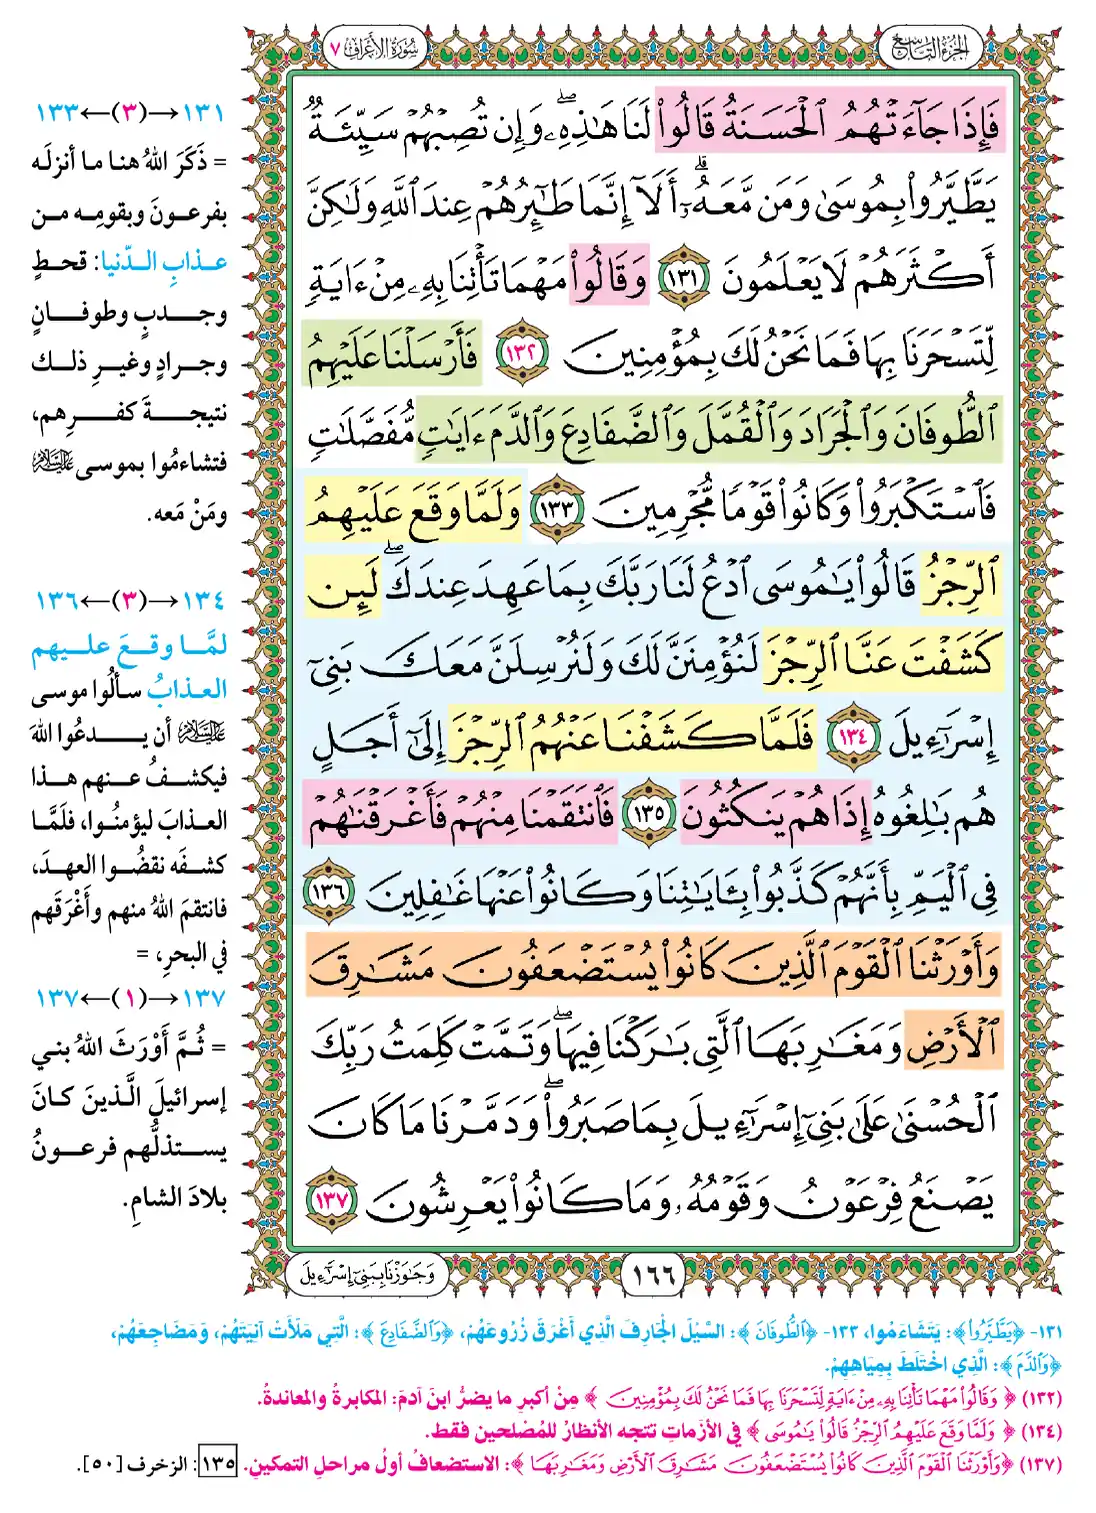 الجزء التاسع
سورة الأعراف ٧
فَإِذَا جَآءَتْهُمُ ٱلْحَسَنَةُ قَالُوا۟ لَنَا هَٰذِهِۦ ۖ وَإِن تُصِبْهُمْ سَيِّئَةٌ
يَطَّيَّرُوا۟ بِمُوسَىٰ وَمَن مَّعَهُۥٓ ۗ أَلَآ إِنَّمَا طَٰٓئِرُهُمْ عِندَ ٱللَّهِ وَلَٰكِنَّ
أَكْثَرَهُمْ لَا يَعْلَمُونَ ١٣١ وَقَالُوا۟ مَهْمَا تَأْتِنَا بِهِۦ مِنْ ءَايَةٍ
لِّتَسْحَرَنَا بِهَا فَمَا نَحْنُ لَكَ بِمُؤْمِنِينَ ١٣٢ فَأَرْسَلْنَا عَلَيْهِمُ
ٱلطُّوفَانَ وَٱلْجَرَادَ وَٱلْقُمَّلَ وَٱلضَّفَادِعَ وَٱلدَّمَ ءَايَٰتٍ مُّفَصَّلَٰتٍ
فَٱسْتَكْبَرُوا۟ وَكَانُوا۟ قَوْمًا مُّجْرِمِينَ ١٣٣ وَلَمَّا وَقَعَ عَلَيْهِمُ
ٱلرِّجْزُ قَالُوا۟ يَٰمُوسَى ٱدْعُ لَنَا رَبَّكَ بِمَا عَهِدَ عِندَكَ ۖ لَئِن
كَشَفْتَ عَنَّا ٱلرِّجْزَ لَنُؤْمِنَنَّ لَكَ وَلَنُرْسِلَنَّ مَعَكَ بَنِىٓ
إِسْرَٰٓءِيلَ ١٣٤ فَلَمَّا كَشَفْنَا عَنْهُمُ ٱلرِّجْزَ إِلَىٰٓ أَجَلٍ
هُم بَٰلِغُوهُ إِذَا هُمْ يَنكُثُونَ ١٣٥ فَٱنتَقَمْنَا مِنْهُمْ فَأَغْرَقْنَٰهُمْ
فِى ٱلْيَمِّ بِأَنَّهُمْ كَذَّبُوا۟ بِـَٔايَٰتِنَا وَكَانُوا۟ عَنْهَا غَٰفِلِينَ ١٣٦
وَأَوْرَثْنَا ٱلْقَوْمَ ٱلَّذِينَ كَانُوا۟ يُسْتَضْعَفُونَ مَشَٰرِقَ
ٱلْأَرْضِ وَمَغَٰرِبَهَا ٱلَّتِى بَٰرَكْنَا فِيهَا ۖ وَتَمَّتْ كَلِمَتُ رَبِّكَ
ٱلْحُسْنَىٰ عَلَىٰ بَنِىٓ إِسْرَٰٓءِيلَ بِمَا صَبَرُوا۟ ۖ وَدَمَّرْنَا مَا كَانَ
يَصْنَعُ فِرْعَوْنُ وَقَوْمُهُۥ وَمَا كَانُوا۟ يَعْرِشُونَ ١٣٧
١٦٦
وَجَٰوَزْنَا بِبَنِىٓ إِسْرَٰٓءِيلَ
١٣١→(٣)←١٣٣
= ذَكَرَ اللهُ هنا ما أنزلَه
بفرعونَ وبقومِه من
عذابِ الدّنيا: قحطٍ
وجدبٍ وطوفانٍ
وجرادٍ وغيرِ ذلك
نتيجةَ كفرِهم،
فتشاءمُوا بموسى عليه السلام
ومَنْ مَعه.
١٣٤→(٣)←١٣٦
لمَّا وقعَ عليهم
العذابُ سألُوا موسى
عليه السلام أن يدعُوا اللهَ
فيكشفُ عنهم هذا
العذابَ ليؤمنُوا، فلَمَّا
كشفَه نقضُوا العهدَ،
فانتقمَ اللهُ منهم وأَغْرَقَهم
في البحرِ، =
١٣٧→(١)←١٣٧
= ثُمَّ أَوْرَثَ اللهُ بني
إسرائيلَ الَّذينَ كانَ
يستذلُّهم فرعونُ
بلادَ الشامِ.
١٣١- ﴿يَطَّيَّرُوا۟﴾: يَتَشَاءَمُوا، ١٣٣- ﴿ٱلطُّوفَانَ﴾: السَّيْلَ الجَارِفَ الَّذِي أَغْرَقَ زُرُوعَهُمْ، ﴿وَٱلضَّفَادِعَ﴾: الَّتِي مَلَأَتْ آنِيَتَهُمْ، وَمَضَاجِعَهُمْ،
﴿وَٱلدَّمَ﴾: الَّذِي اخْتَلَطَ بِمِيَاهِهِمْ.
(١٣٢) ﴿وَقَالُوا۟ مَهْمَا تَأْتِنَا بِهِۦ مِنْ ءَايَةٍ لِّتَسْحَرَنَا بِهَا فَمَا نَحْنُ لَكَ بِمُؤْمِنِينَ﴾ مِنْ أكبرِ ما يضرُّ ابنَ آدمَ: المكابرةُ والمعاندةُ.
(١٣٤) ﴿وَلَمَّا وَقَعَ عَلَيْهِمُ ٱلرِّجْزُ قَالُوا۟ يَٰمُوسَى﴾ في الأزماتِ تتجه الأنظارُ للمُصْلحين فقط.
(١٣٧) ﴿وَأَوْرَثْنَا ٱلْقَوْمَ ٱلَّذِينَ كَانُوا۟ يُسْتَضْعَفُونَ مَشَٰرِقَ ٱلْأَرْضِ وَمَغَٰرِبَهَا﴾: الاستضعافُ أولُ مراحلِ التمكينِ. ١٣٥: الزخرف [٥٠].